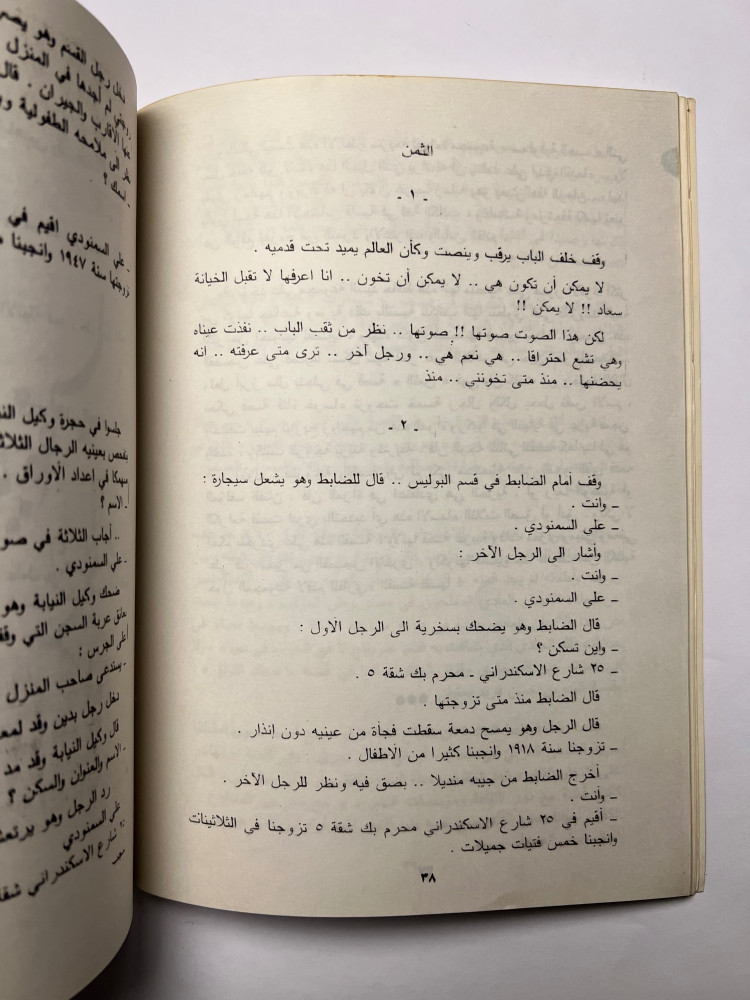 الثمن
- ١ -
وقف خلف الباب يرقب وينصت وكأن العالم يميد تحت قدميه .
لا يمكن أن تكون هي .. لا يمكن أن تخون .. انا اعرفها لا تقبل الخيانة
سعاد !! لا يمكن !!
لكن هذا الصوت صوتها !! صوتها .. نظر من ثقب الباب .. نفذت عيناه
وهي تشع احتراقا .. هي نعم هي .. ورجل آخر .. ترى متى عرفته .. انه
يحضنها .. منذ متى تخونني .. منذ
- ٢ -
وقف أمام الضابط في قسم البوليس .. قال للضابط وهو يشعل سيجارة :
ـ وانت .
ـ علي السمنودي .
وأشار الى الرجل الآخر :
ـ وانت .
ـ علي السمنودي .
قال الضابط وهو يضحك بسخرية الى الرجل الاول :
ـ واين تسكن ؟
ـ ٢٥ شارع الاسكندراني ـ محرم بك شقة ٥ .
قال الضابط منذ متى تزوجتها .
قال الرجل وهو يمسح دمعة سقطت فجأة من عينيه دون إنذار .
ـ تزوجنا سنة ١٩١٨ وانجبنا كثيرا من الاطفال .
أخرج الضابط من جيبه منديلا .. بصق فيه ونظر للرجل الآخر .
ـ وأنت .
ـ أقيم في ٢٥ شارع الاسكندراني محرم بك شقة ٥ تزوجنا في الثلاثينات
وانجبنا خمس فتيات جميلات .
٣٨
دخل رجل القسم وهو
زوجتي لم أجدها في المنزل
الأقارب والجيران . قال
الى ملامحه الطفولية
ـ اسمك ؟
ـ علي السمنودي اقيم في
تزوجتها سنة ١٩٤٧ وانجبنا
جلسوا في حجرة وكيل
يتفحص بعينيه الرجال
منهمكا في اعداد الأوراق .
ـ الاسم ؟
.. أجاب الثلاثة في
ـ علي السمنودي .
ضحك وكيل النيابة وهو
عربة السجن التي
الجرس :
ـ يستدعى صاحب المنزل
دخل رجل بدين وقد
قال وكيل النيابة وقد مد
ـ الاسم والعنوان والسكن ؟
رد الرجل وهو
علي السمنودي
شارع الاسكندراني شقة